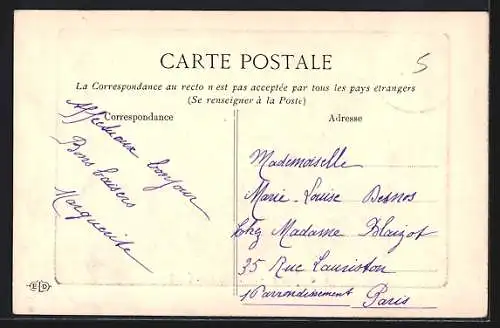 CARTE POSTALE
5
La Correspondance au recto n'est pas acceptée par tous les pays étrangers
(Se renseigner à la Poste)
Correspondance
Adresse
Affectueux bonjour
Bons baisers
Marguerite
Mademoiselle
Marie-Louise Desnos
Chez Madame Blaizot
35 Rue Lauriston
Arrondissement Paris
ELD